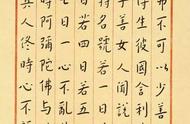 弗不可以少善
得生彼國舍利
子善女人聞說
持名號若一日
日若四日若五
七日一心不亂
時阿彌陀佛與
人終時心不